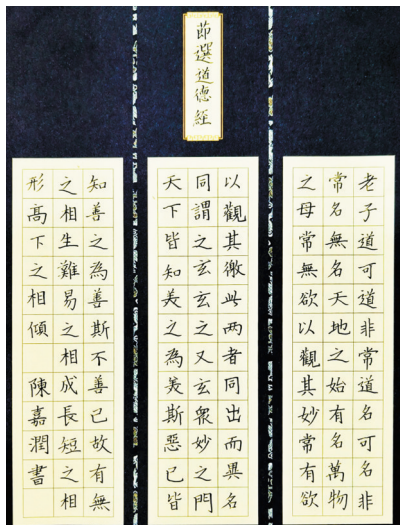 節選道德經
老子道可道非常道名可名非
常名無名天地之始有名萬物
之母常無欲以觀其妙常有欲
以觀其徼此两者同出而異名
同謂之玄玄之又玄衆妙之門
天下皆知美之為美斯惡已皆
知善之為善斯不善已故有無
之相生難易之相成長短之相
形高下之相傾 陳嘉潤書